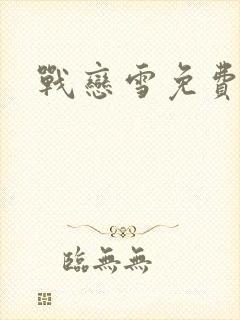 戰戀雪免費
臨無無